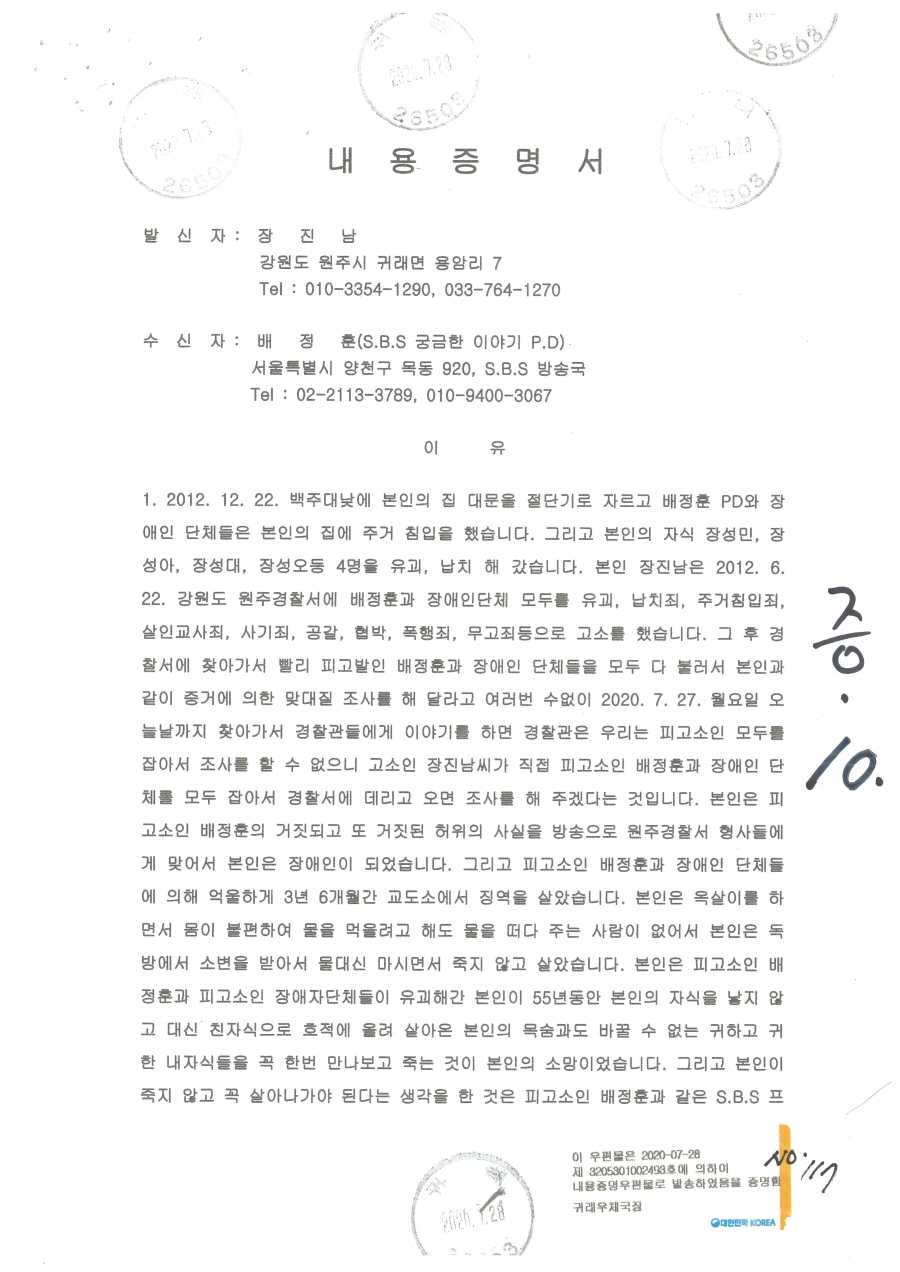 귀래
2020.7.28
26503
26503
2020.7.28
26503
2020.7.28
26503
내 용 증 명 서
발 신 자 : 장 진 남
강원도 원주시 귀래면 용암리 7
Tel : 010-3354-1290, 033-764-1270
수 신 자 : 배 정 훈(S.B.S 궁금한 이야기 P.D)
서울특별시 양천구 목동 920, S.B.S 방송국
Tel : 02-2113-3789, 010-9400-3067
이 유
1. 2012. 12. 22. 백주대낮에 본인의 집 대문을 절단기로 자르고 배정훈 PD와 장
애인 단체들은 본인의 집에 주거 침입을 했습니다. 그리고 본인의 자식 장성민, 장
성아, 장성대, 장성오등 4명을 유괴, 납치 해 갔습니다. 본인 장진남은 2012. 6.
22. 강원도 원주경찰서에 배정훈과 장애인단체 모두를 유괴, 납치죄, 주거침입죄,
살인교사죄, 사기죄, 공갈, 협박, 폭행죄, 무고죄등으로 고소를 했습니다. 그 후 경
찰서에 찾아가서 빨리 피고발인 배정훈과 장애인 단체들을 모두 다 불러서 본인과
같이 증거에 의한 맞대질 조사를 해 달라고 여러번 수없이 2020. 7. 27. 월요일 오
늘날까지 찾아가서 경찰관들에게 이야기를 하면 경찰관은 우리는 피고소인 모두를
잡아서 조사를 할 수 없으니 고소인 장진남씨가 직접 피고소인 배정훈과 장애인 단
체를 모두 잡아서 경찰서에 데리고 오면 조사를 해 주겠다는 것입니다. 본인은 피
고소인 배정훈의 거짓되고 또 거짓된 허위의 사실을 방송으로 원주경찰서 형사들에
게 맞어서 본인은 장애인이 되었습니다. 그리고 피고소인 배정훈과 장애인 단체들
에 의해 억울하게 3년 6개월간 교도소에서 징역을 살았습니다. 본인은 옥살이를 하
면서 몸이 불편하여 물을 먹을려고 해도 물을 떠다 주는 사람이 없어서 본인은 독
방에서 소변을 받아서 물대신 마시면서 죽지 않고 살았습니다. 본인은 피고소인 배
정훈과 피고소인 장애자단체들이 유괴해간 본인이 55년동안 본인의 자식을 낳지 않
고 대신 친자식으로 호적에 올려 살아온 본인의 목숨과도 바꿀 수 없는 귀하고 귀
한 내자식들을 꼭 한번 만나보고 죽는 것이 본인의 소망이었습니다. 그리고 본인이
죽지 않고 꼭 살아나가야 된다는 생각을 한 것은 피고소인 배정훈과 같은 S.B.S 프
증. 10.
이 우편물은 2020-07-28
제 3205301002493호에 의하여
내용증명우편물로 발송하였음을 증명함
귀래우체국장
대한민국 KOREA
NO. 117
귀래
2020.7.28